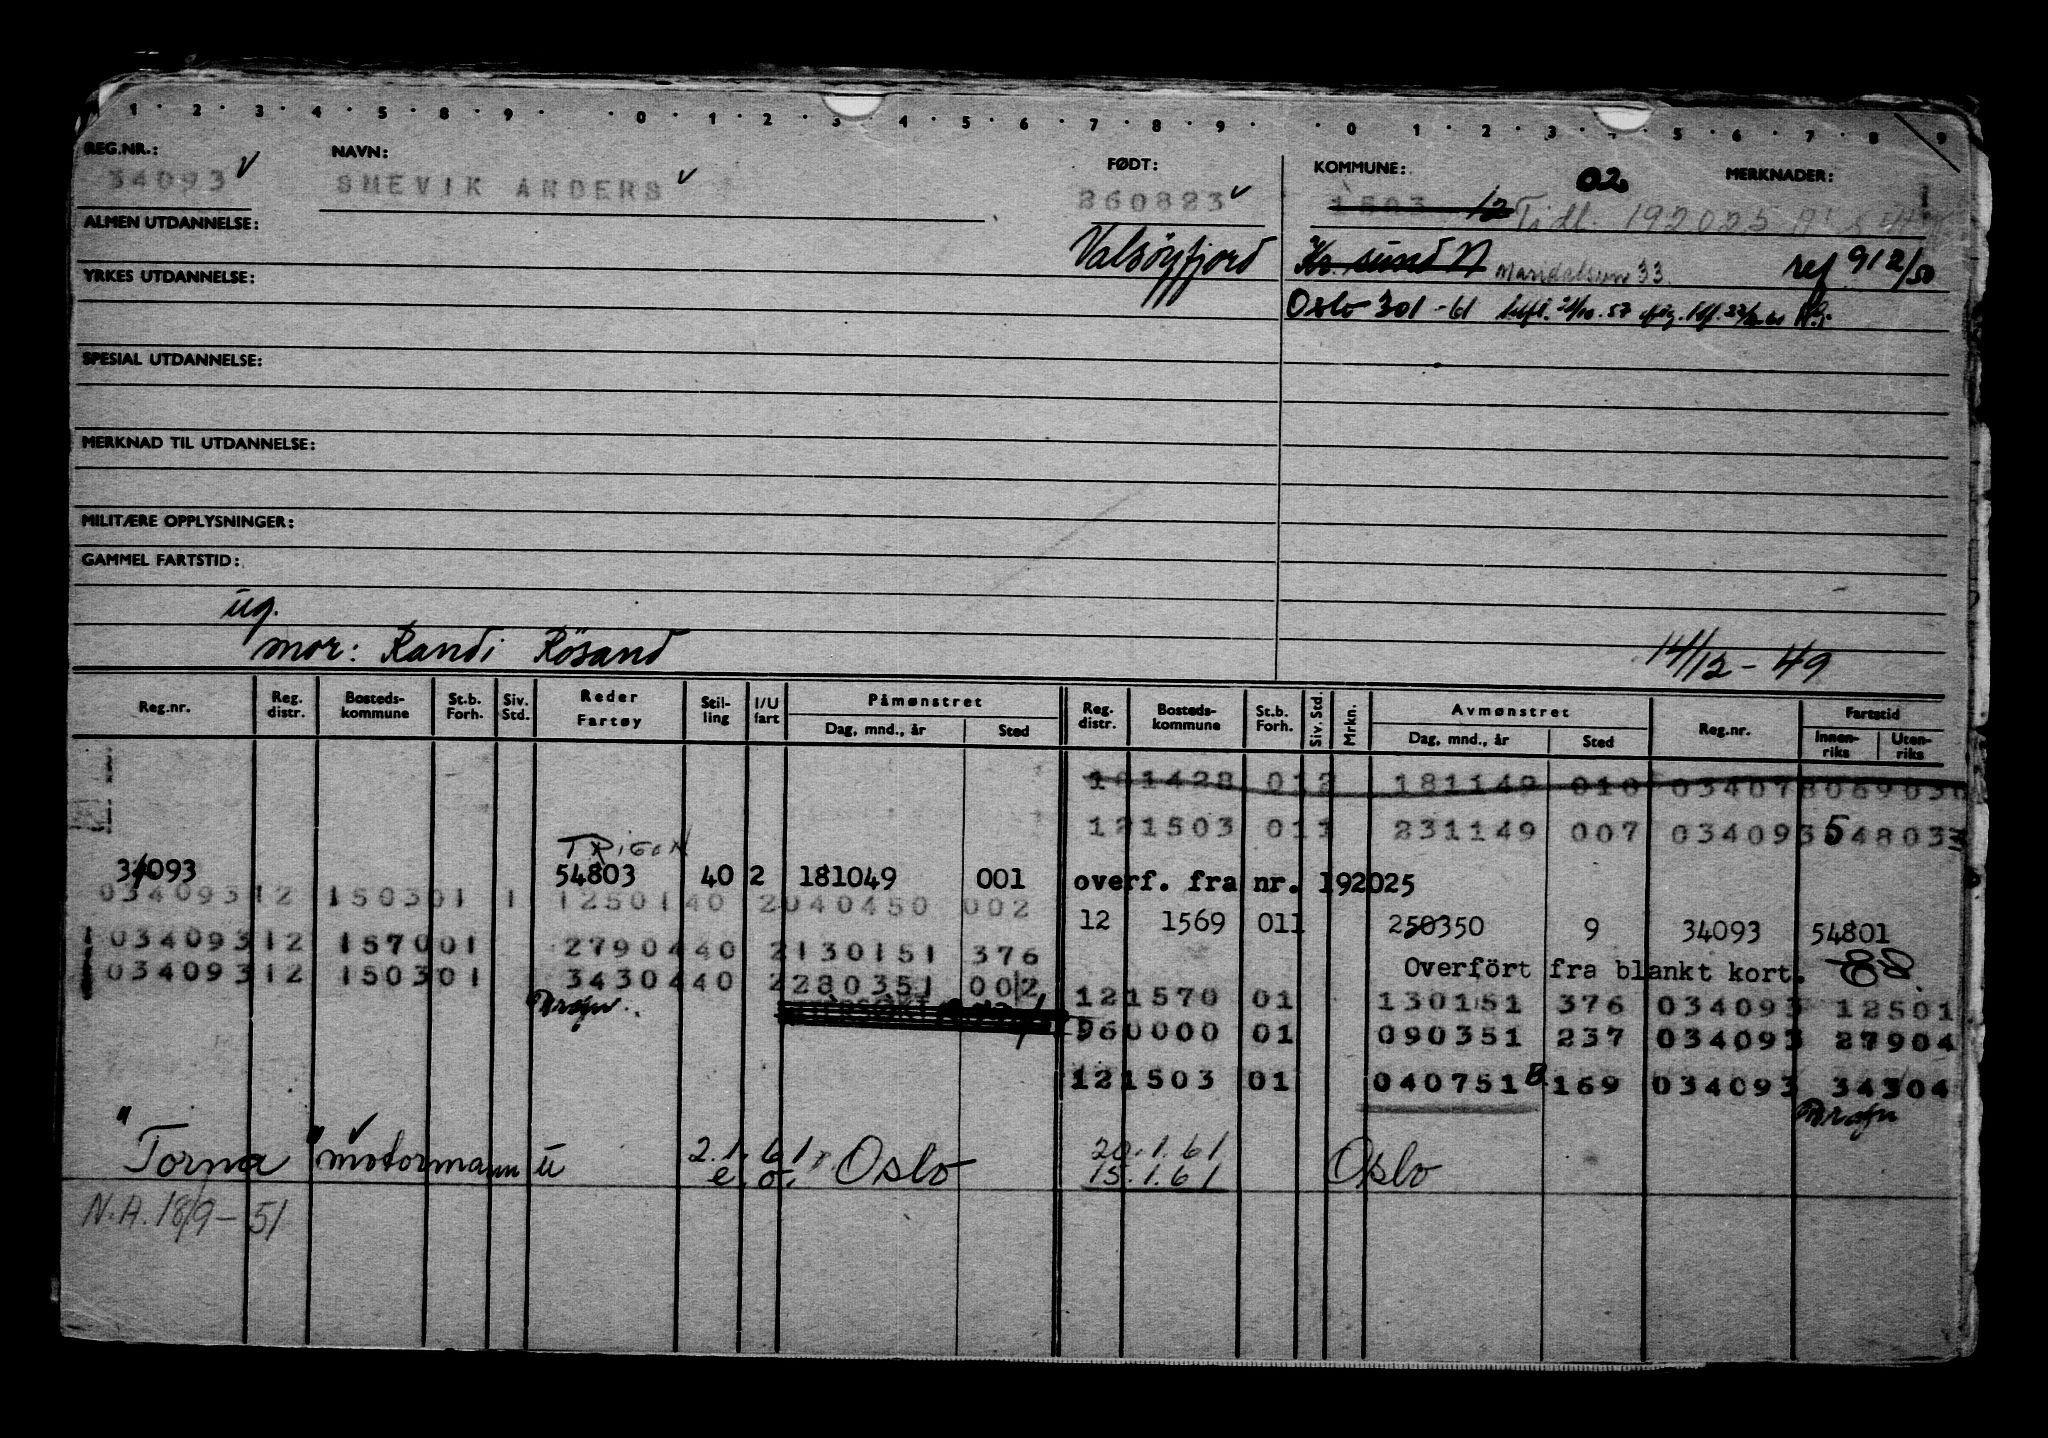 1 · 2 · 3 · 4 · 5 · 8 · 9 · · 0 · 1 · 2 · 3 · 4 · 5 · 6 · 7 · 8 · 9 · · 0 · 1 · 2 · 3 · 4 · 5 · 6 · 7 · 8 · 9
REG.NR.: NAVN: FØDT: KOMMUNE: 02. MERKNADER:
34093 SMEVIK ANDERS 260823 1503 12 Tidl. 192025
ALMEN UTDANNELSE:
Valsöyfjord Kr. sund N Mandalsun 33. ref 912/50
YRKES UTDANNELSE:
Oslo 301 - 61
SPESIAL UTDANNELSE:
MERKNAD TIL UTDANNELSE:
MILITÆRE OPPLYSNINGER:
GAMMEL FARTSTID:
ug.
mor: Randi Rösand 14/12 - 49
Reg.nr. Reg. distr. Bosteds-kommune St.b. Forh. Siv. Std. Reder Fartøy Stil-ling I/U fart Påmønstret Dag, mnd., år Sted Reg. distr. Bosteds-kommune St.b. Forh. Siv. Std. Mrkn. Avmønstret Dag, mnd., år Sted Reg.nr. Fartstid Innen-riks Uten-riks
101428 012 181149 010 034078069030
121503 011 231149 007 034093548033
TRIGON
34093 54803 40 2 181049 001 overf. fra nr. 192025
03409312 150301 1 1250140 2040450 002
12 1569 011 250350 9 34093 54801
03409312 157001 2790440 2130151 376
Overfört fra blankt kort.
03409312 150301 3430440 2280351 002
121570 01 130151 376 034093 12501
960000 01 090351 237 034093 27904
121503 01 040751 B 169 034093 34304
"Torna" motormann u 2.1.61. Oslo 20.1.61 Oslo
e.o. 15.1.61
N.A. 18/9 - 51